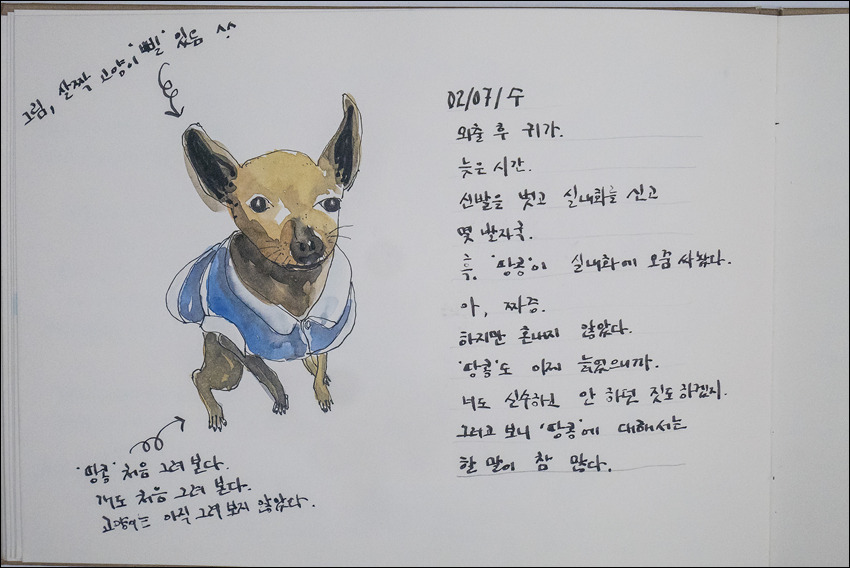 그림, 살짝 고양이 '삘' 있음 ^^
02/07/수
외출 후 귀가.
늦은 시간.
신발을 벗고 실내화를 신고
몇 발자국.
흑. '땅콩'이 실내화에 오줌 싸놨다.
아, 짜증.
하지만 혼내지 않았다.
'땅콩'도 이제 늙었으니까.
너도 실수하고 안 하던 짓도 하겠지.
그러고 보니 '땅콩'에 대해서는
할 말이 참 많다.
'땅콩' 처음 그려 본다.
개도 처음 그려 본다.
고양이는 아직 그려 보지 않았다.